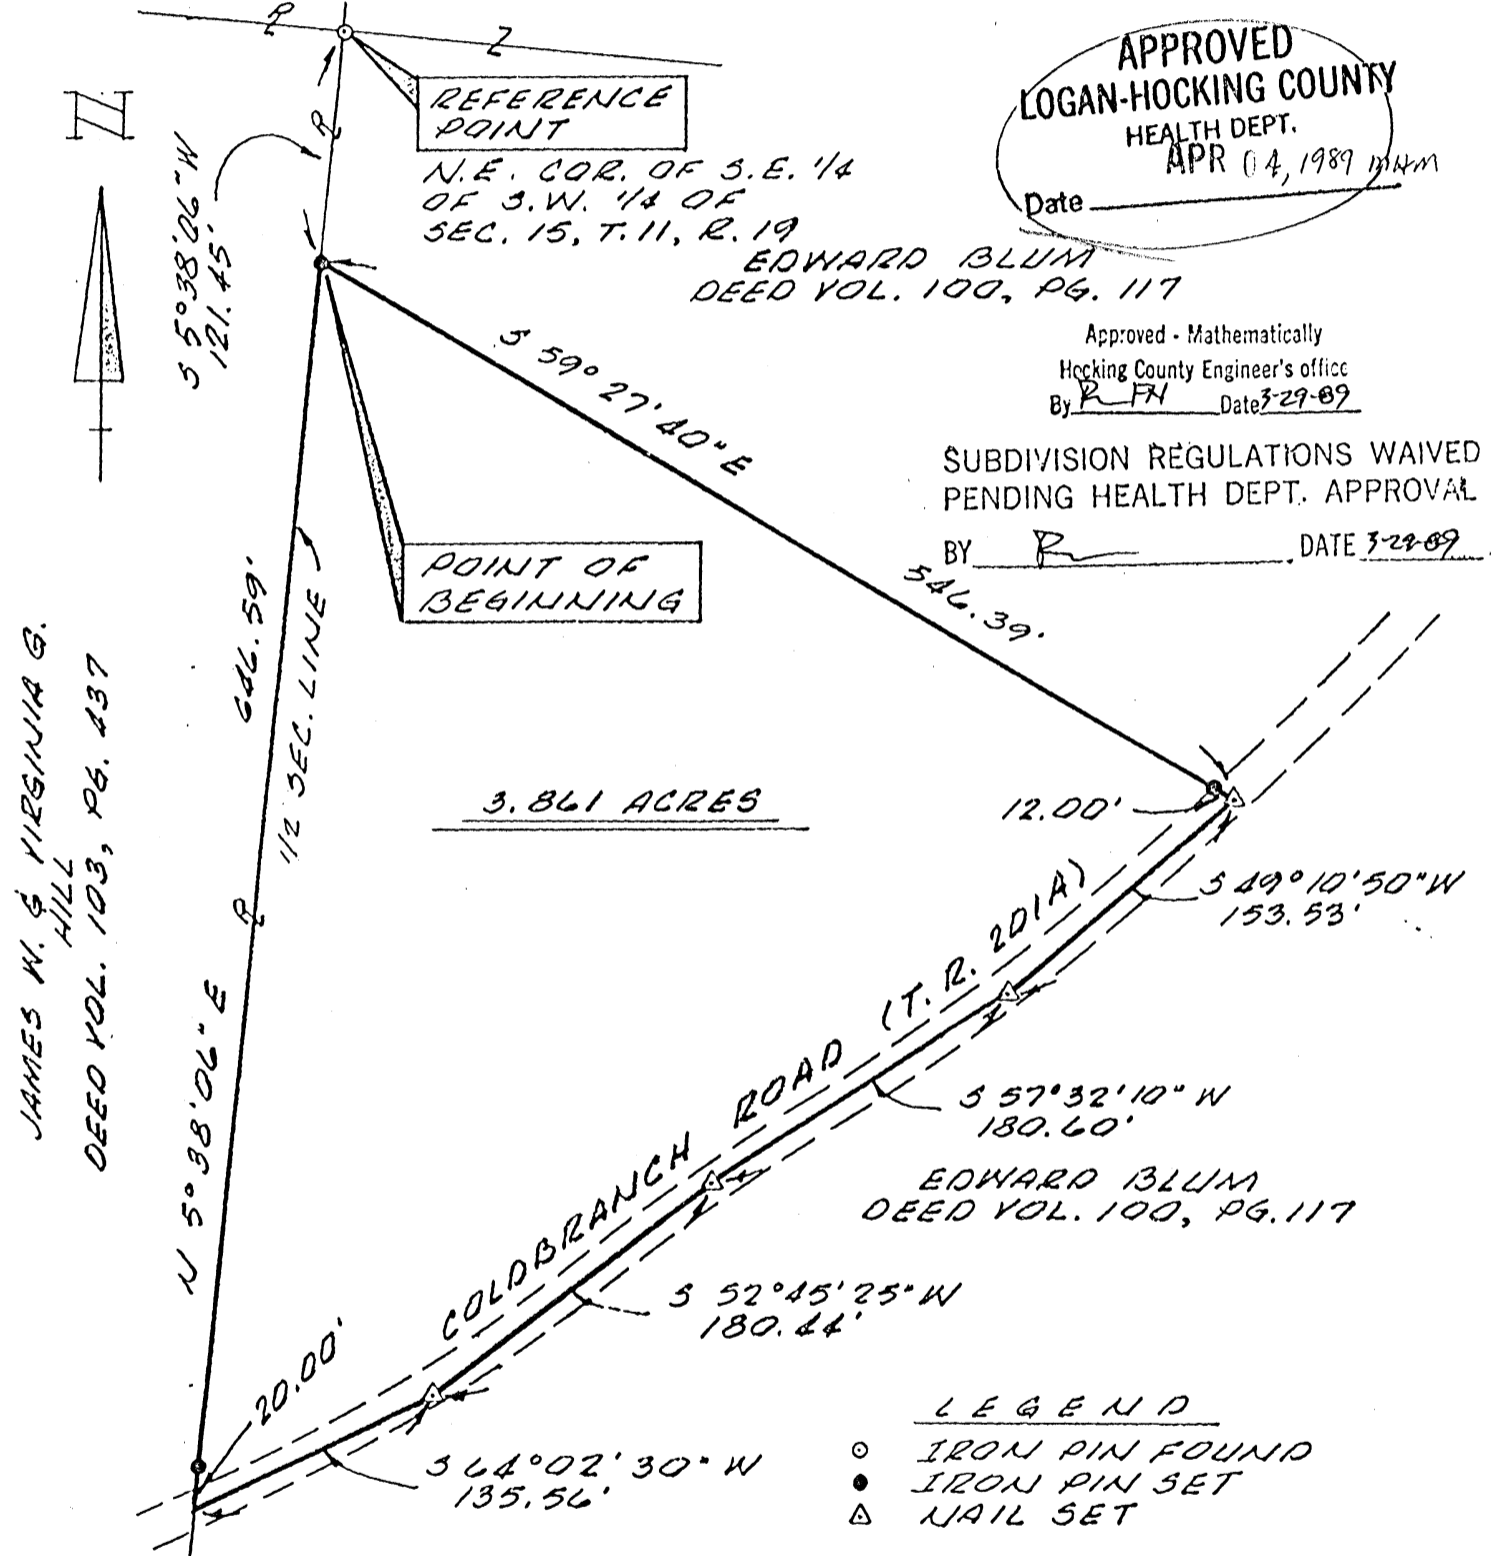 N
REFERENCE
POINT
N.E. COR. OF S.E. 1/4
OF S.W. 1/4 OF
SEC. 15, T.11, R.19
S 5°38'06" W
121.45'
APPROVED
LOGAN-HOCKING COUNTY
HEALTH DEPT.
APR 04, 1989
Date
EDWARD BLUM
DEED VOL. 100, PG. 117
Approved - Mathematically
Hocking County Engineer's office
By Date 3-29-89
SUBDIVISION REGULATIONS WAIVED
PENDING HEALTH DEPT. APPROVAL
BY DATE
S 59° 27' 40" E
546.39'
POINT OF
BEGINNING
646.59'
1/2 SEC. LINE
N 5° 38' 06" E
JAMES W. & VIRGINIA G.
HILL
DEED VOL. 103, PG. 437
3.861 ACRES
12.00'
S 49°10'50" W
153.53'
COLDBRANCH ROAD (T.R. 201A)
S 57°32'10" W
180.60'
EDWARD BLUM
DEED VOL. 100, PG. 117
S 52°45'25" W
180.44'
20.00'
S 64°02'30" W
135.56'
LEGEND
IRON PIN FOUND
IRON PIN SET
NAIL SET